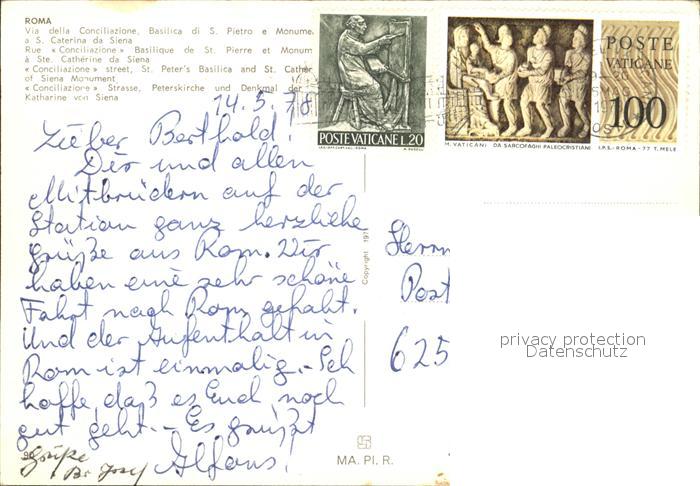 ROMA
Via della Conciliazione, Basilica di S. Pietro e Monume
a S. Caterina da Siena
Rue «Conciliazione» Basilique de St. Pierre et Monum
à Ste. Cathérine da Siena
«Conciliazione» street, St. Peter's Basilica and St. Cather
of Siena Monument
«Conciliazione» Strasse, Peterskirche und Denkmal der
Katharine von Siena
14.5.78
Lieber Berthold!
Dir und allen
Mitbrüdern auf der
Station ganz herzliche
Grüße aus Rom. Wir
haben eine sehr schöne
Fahrt nach Rom gehabt.
Und der Aufenthalt in
Rom ist einmalig. - Ich
hoffe, daß es Euch noch
gut geht. - Es grüßt
Alfons!
Grüße
Br. Josef
POSTE VATICANE L.20
POSTE
VATICANE
100
M. VATICANI DA SARCOFAGHI PALEOCRISTIANI
I.P.S.-ROMA-77 T. MELE
Copyright 197
Herrn
Post
625
privacy protection
Datenschutz
MA. PI. R.